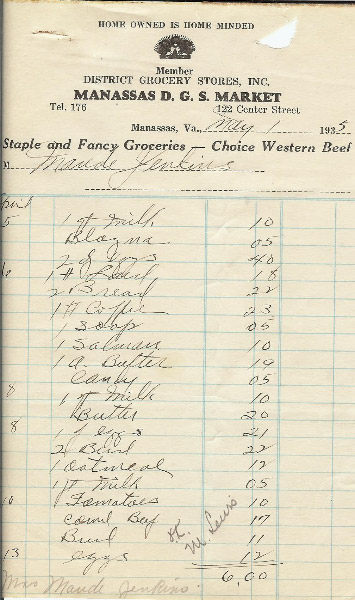 HOME OWNED IS HOME MINDED
Member
DISTRICT GROCERY STORES, INC.
MANASSAS D. G. S. MARKET
Tel. 176 122 Center Street
Manassas, Va., May 1 1935
Staple and Fancy Groceries — Choice Western Beef
M Maude Jenkins
5 1 qt Milk 10
Blogna 05
2 d eggs 40
6 1 # Lard 18
2 Bread 22
1 # Coffee 23
1 Soap 05
1 Salman 10
1 Butter 19
Candy 05
8 1 qt Milk 10
Butter 20
8 1 d eggs 21
2 Bread 22
1 oatmeal 12
1 pt Milk 05
10 1 Tomatoes 10
Cornd Beef 17
Bread 11
13 eggs 12
ok. M. Lewis
6.00
Mrs Maude Jenkins.